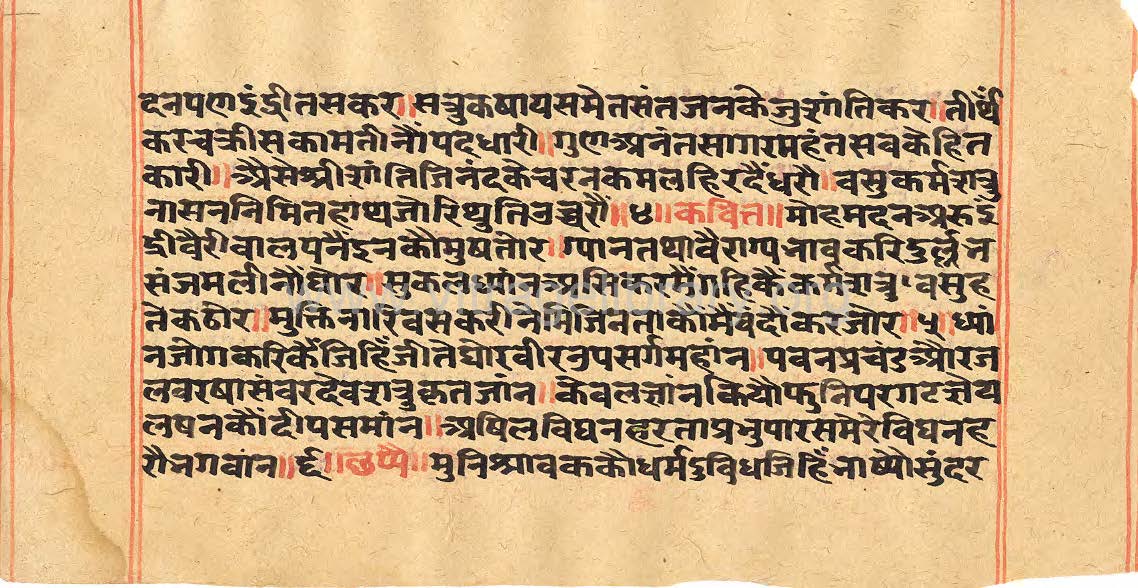 दनपणइंद्रीतसकर॥सत्रुकषायसमेतसंतजनकेजुशांतिकर॥तीर्थं
करचक्रीसकामतीनौंपदधारी॥गुणअनंतसागरमहंतसबकैहित
कारी॥अैसेश्रीशांतिजिनंदकैचरनकमलहिरदैंधरौ॥वसुकर्मशत्रु
नासननिमितहाथजोरिथुतिउच्चरौं॥४॥कवित॥मोहमदनअरुइं
द्रीवैरीबालपनैंइनकौमुषतोर॥ग्यानतथावैराग्यनावकरिदुर्ल्लन
संजमलीनौंघोर॥सुकलध्यांनअसिकरमैंगहिकैंकर्मशत्रुवसुह
तेकठोर॥मुक्तिनारिवसकरीनमिजिनतीकौंमैंबंदौकरजोर॥५॥ध्यां
नजोगकरिकैंजिहिंजीतेघोरवीरउपसर्गमहांन॥पवनप्रचंडऔरज
लवरषासंवरदेवशत्रुकृतजांन॥केवलज्ञांनकियौफुनिपरगटज्ञेय
लषनकौंदीपसमांन॥अषिलविघनहरताप्रभुपारसमेरेविघनह
रौभगवांन॥६॥छप्पै॥मुनिश्रावककौधर्मदुविधजिहिंभाष्यौसुंदर
www.vitragelibrary.org